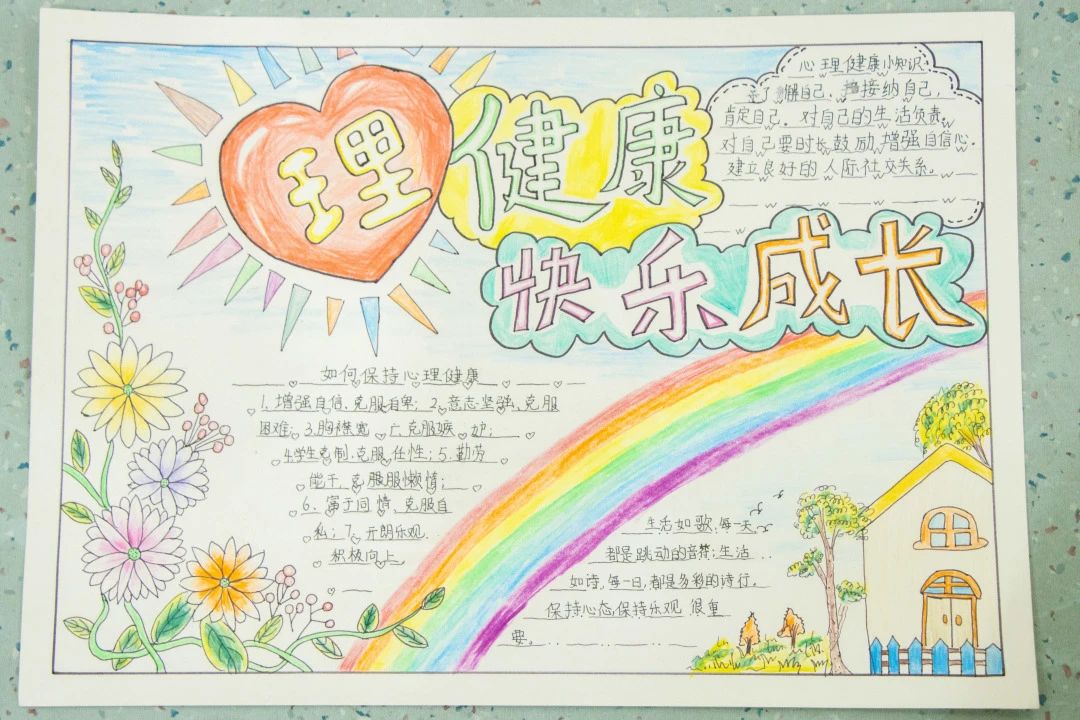 理健康
快乐成长
心理健康小知识
了懈自己、接纳自己,
肯定自己。对自己的生活负责。
对自己要时长鼓励,增强自信心.
建立良好的人际社交关系。
如何保持心理健康
1、增强自信、克服自卑；2、意志坚强、克服
困难；3、胸襟宽 克服嫉妒；
4、学生克制、克服任性；5、勤劳
能干、克服服懒惰；
6、富于同情、克服自
私；7、开朗乐观.
积极向上
生态如歌,每一天
都是跳动的音符；生活
如诗,每一日,都是多彩的诗行。
保持心态,保持乐观 很重
要。